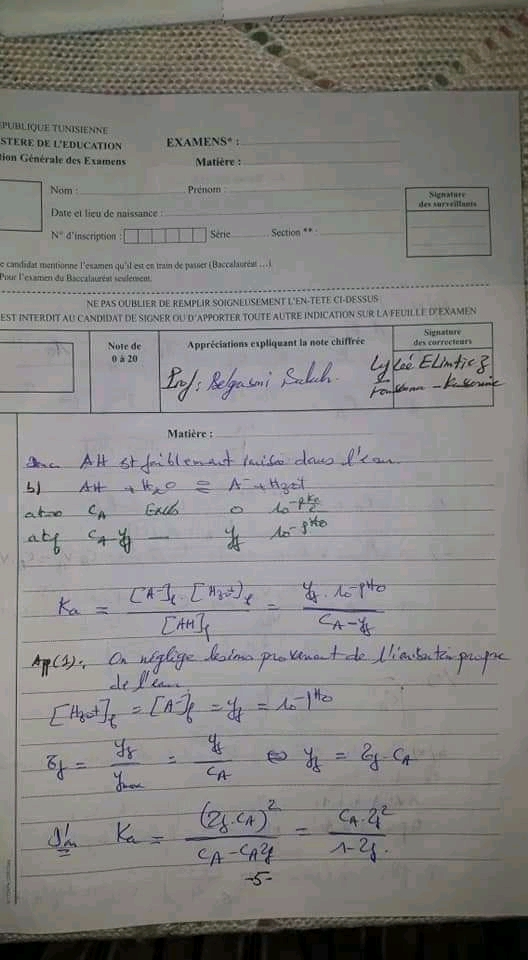 EPUBLIQUE TUNISIENNE
STERE DE L'EDUCATION
tion Générale des Examens
EXAMENS* :
Matière :
Nom : Prénom :
Date et lieu de naissance :
N° d'inscription : Série Section ** :
Signature
des surveillants
e candidat mentionne l'examen qu'il est en train de passer (Baccalauréat …).
Pour l'examen du Baccalauréat seulement.
NE PAS OUBLIER DE REMPLIR SOIGNEUSEMENT L'EN-TETE CI-DESSUS
EST INTERDIT AU CANDIDAT DE SIGNER OU D'APPORTER TOUTE AUTRE INDICATION SUR LA FEUILLE D'EXAMEN
Note de
0 à 20
Appréciations expliquant la note chiffrée
Signature
des correcteurs
Prof: Belgasmi Salah.
Matière :
AH est faiblement ionisé dans l'eau.
b) AH + H2O ⇌ A- + H3O+
at=0 CA Excès 0 10^-pKe/2
atf CA-yf — yf 10^-pH0
Ka = [A-]f.[H3O+]f / [AH]f = yf.10^-pH0 / CA-yf
App(1): On néglige les ions provenant de l'ionisation propre
de l'eau
[H3O+]f = [A-]f = yf = 10^-pH0
τf = yf / ymax = yf / CA ⇔ yf = τf.CA
D'où Ka = (τf.CA)^2 / CA-CAτf = CA.τf^2 / 1-τf.
-5-